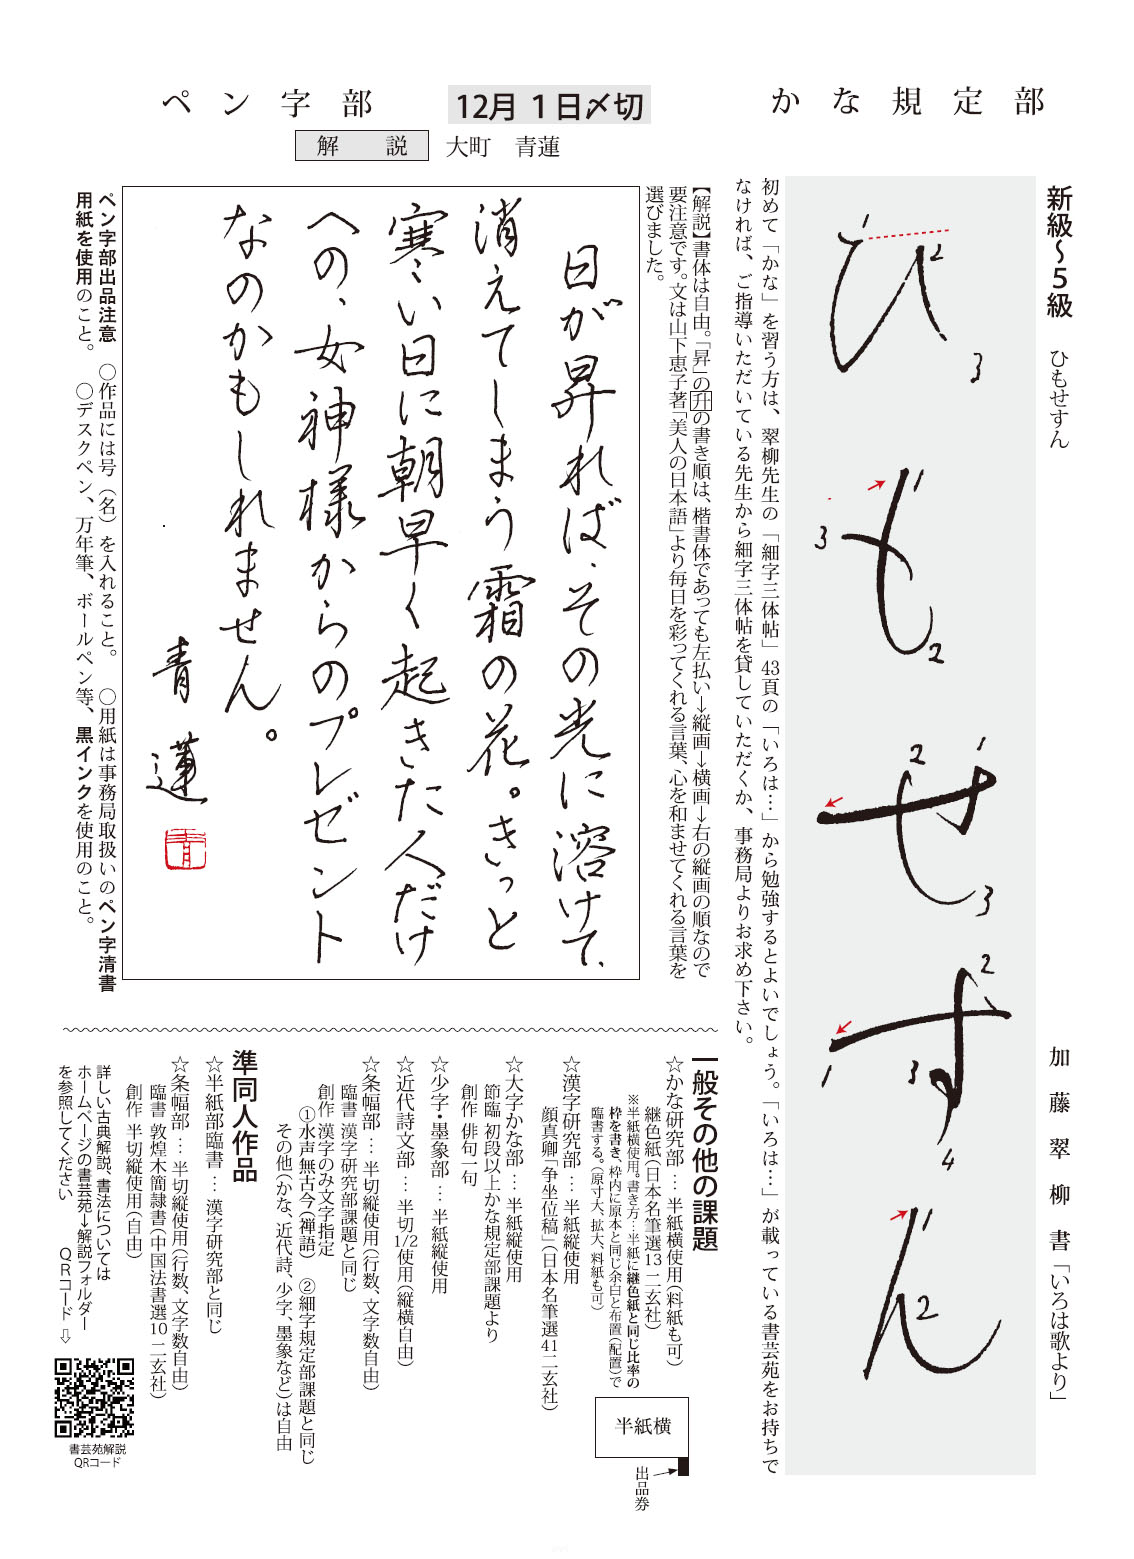 かな規定部
12月1日〆切
ペン字部
解　説　大町　青蓮
新級～5級　ひもせすん
加藤翠柳書「いろは歌より」
ひもせすん
1
2
3
1
2
3
1
2
3
1
2
3
4
1
2
初めて「かな」を習う方は、翠柳先生の「細字三体帖」43頁の「いろは…」から勉強するとよいでしょう。「いろは…」が載っている書芸苑をお持ちで
なければ、ご指導いただいている先生から細字三体帖を貸していただくか、事務局よりお求め下さい。
【解説】書体は自由。「昇」の升の書き順は、楷書体であっても左払い→縦画→横画→右の縦画の順なので
要注意です。文は山下恵子著「美人の日本語」より毎日を彩ってくれる言葉、心を和ませてくれる言葉を
選びました。
日が昇れば、その光に溶けて、
消えてしまう霜の花。きっと
寒い日に朝早く起きた人だけ
への、女神様からのプレゼント
なのかもしれません。
青蓮
青
ペン字部出品注意　○作品には号（名）を入れること。　○用紙は事務局取扱いのペン字清書
用紙を使用のこと。　○デスクペン、万年筆、ボールペン等、黒インクを使用のこと。
一般その他の課題
☆かな研究部…半紙横使用（料紙も可）
継色紙（日本名筆選13 二玄社）
※半紙横使用。書き方…半紙に継色紙と同じ比率の
枠を書き、枠内に原本と同じ余白と布置（配置）で
臨書する。（原寸大、拡大、料紙も可）
半紙横
出品券
☆漢字研究部…半紙縦使用
顔真卿「争坐位稿」（日本名筆選41二玄社）
☆大字かな部…半紙縦使用
節臨 初段以上かな規定部課題より
創作 俳句一句
☆少字・墨象部…半紙縦使用
☆近代詩文部…半切1/2使用（縦横自由）
☆条幅部…半切縦使用（行数、文字数自由）
臨書 漢字研究部課題と同じ
創作 漢字のみ文字指定
①水声無古今（禅語）　②細字規定部課題と同じ
その他（かな、近代詩、少字、墨象など）は自由
準同人作品
☆半紙部臨書…漢字研究部と同じ
☆条幅部…半切縦使用（行数、文字数自由）
臨書 敦煌木簡隷書（中国法書選10 二玄社）
創作 半切縦使用（自由）
詳しい古典解説、書法については
ホームページの書芸苑→解説フォルダー
を参照してください　　QRコード⇨
書芸苑解説
QRコード